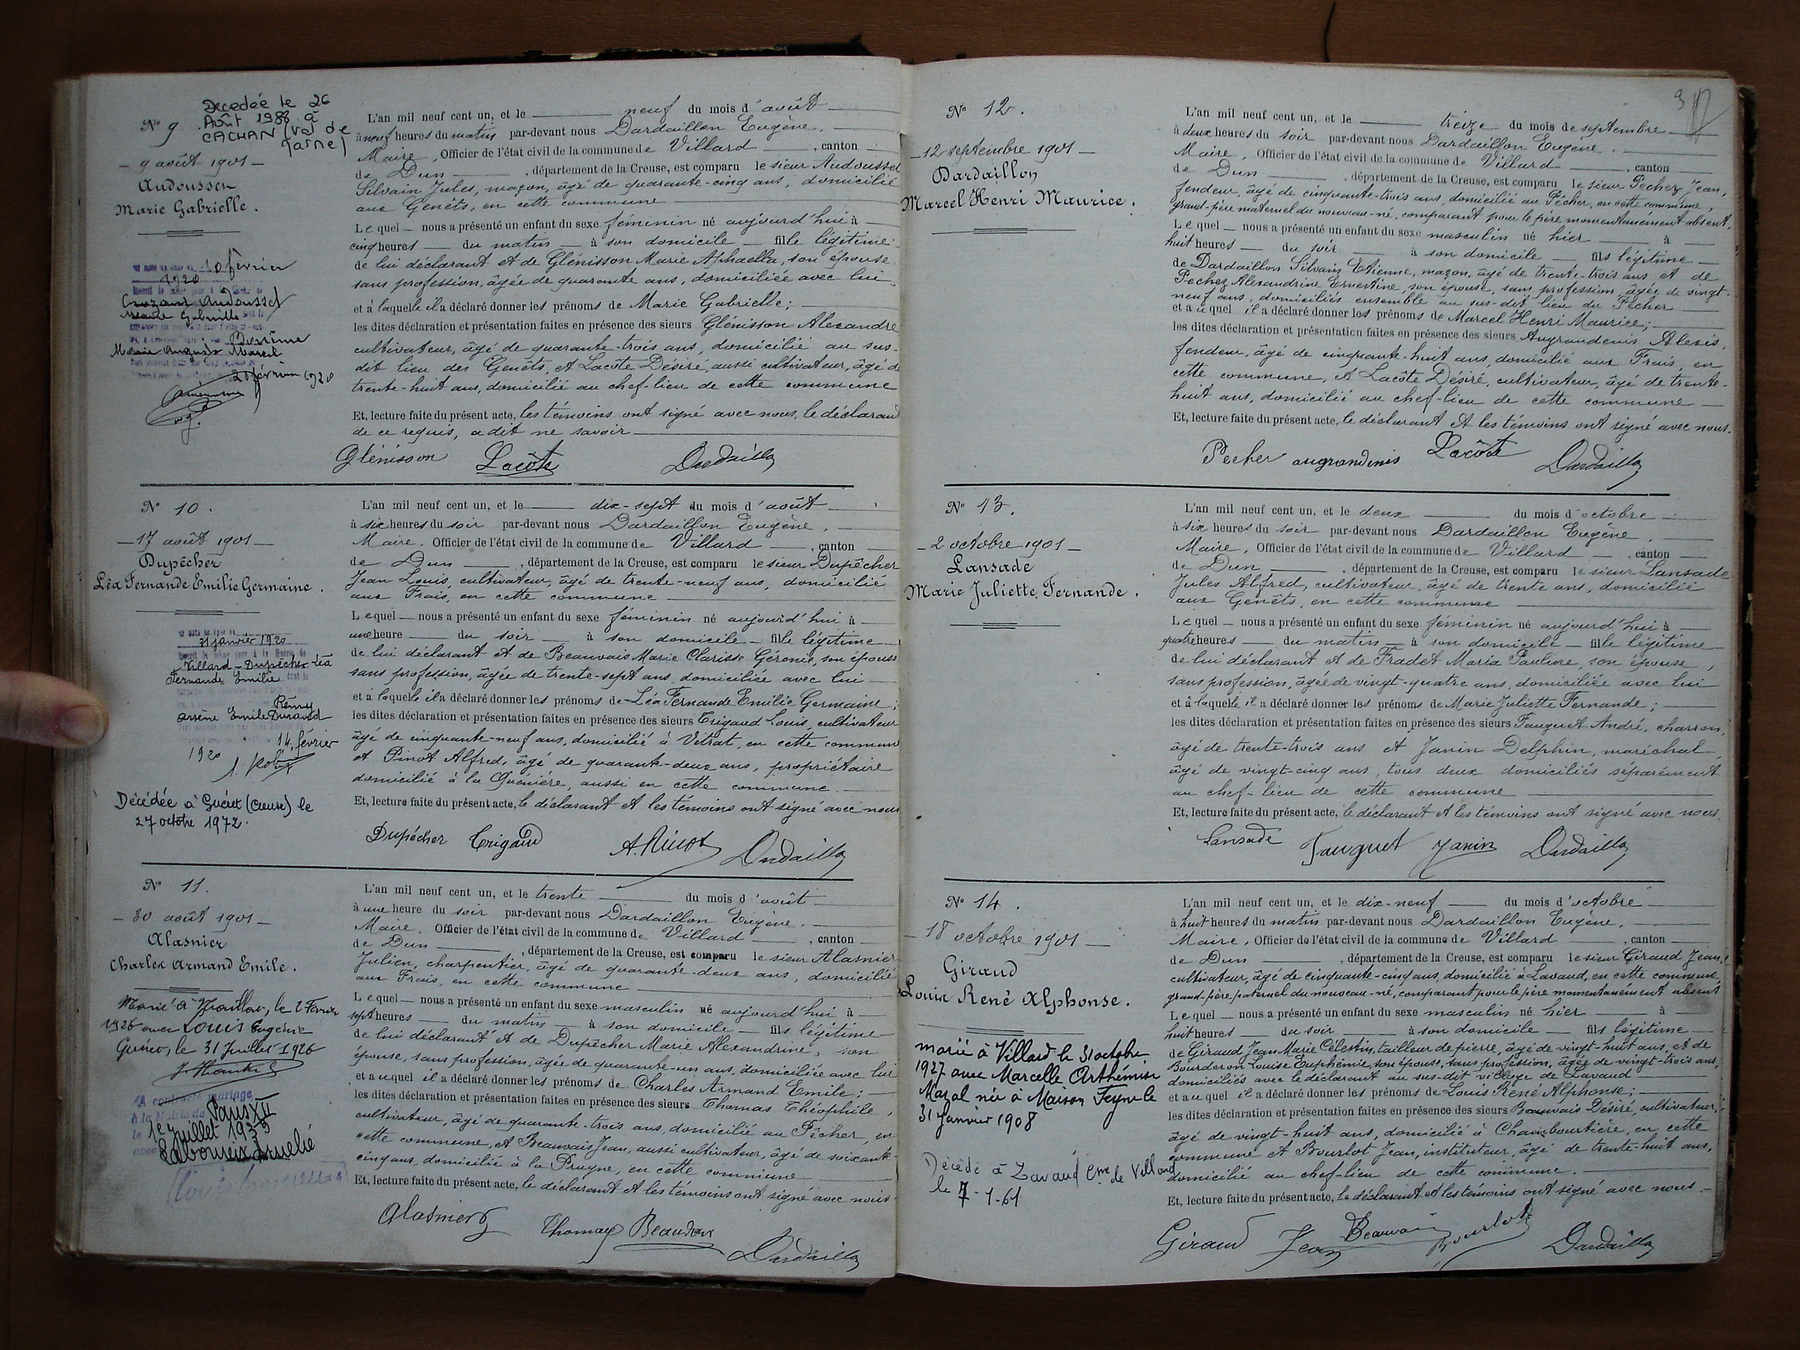 Décédée le 26
Août 1988 à
CACHAN (Val de
Marne)
N° 9
9 août 1901
Audousset
Marie Gabrielle.
10 février
1920
Crozant Audousset
Marie Gabrielle
Auguste Marcel
février 1920
L'an mil neuf cent un, et le neuf du mois d'août
à neuf heures du matin par-devant nous Dardaillon Eugène.
Maire, Officier de l'état civil de la commune de Villard, canton
de Dun, département de la Creuse, est comparu le sieur Audousset
Silvain Jules, maçon, âgé de quarante-cinq ans, domicilié
aux Genêts, en cette commune
Lequel nous a présenté un enfant du sexe féminin né aujourd'hui à
cinq heures du matin à son domicile fille légitime
de lui déclarant et de Glénisson Marie Aphaella, son épouse
sans profession, âgée de quarante ans, domiciliée avec lui
et à laquelle il a déclaré donner les prénoms de Marie Gabrielle;
les dites déclaration et présentation faites en présence des sieurs Glénisson Alexandre
cultivateur, âgé de quarante-trois ans, domicilié au sus-
dit lieu des Genêts, et Lacôte Désiré, aussi cultivateur, âgé de
trente-huit ans, domicilié au chef-lieu de cette commune
Et, lecture faite du présent acte, les témoins ont signé avec nous, le déclarant
de ce requis, a dit ne savoir
Glénisson Lacôte Dardaillon
N° 10.
17 août 1901
Dupêcher
Léa Fernande Emilie Germaine.
31 janvier 1920
Villard - Dupêcher Léa
Fernande Emilie
Rémy
Arsène Emile Durand
14 février
1920
Décédée à Guéret (Creuse) le
27 octobre 1972.
L'an mil neuf cent un, et le dix-sept du mois d'août
à six heures du soir par-devant nous Dardaillon Eugène,
Maire, Officier de l'état civil de la commune de Villard, canton
de Dun, département de la Creuse, est comparu le sieur Dupêcher
Jean Louis, cultivateur, âgé de trente-neuf ans, domicilié
aux Frais, en cette commune
Lequel nous a présenté un enfant du sexe féminin né aujourd'hui à
une heure du soir à son domicile fille légitime
de lui déclarant et de Beauvais Marie Clarisse Géronie, son épouse
sans profession, âgée de trente-sept ans, domiciliée avec lui
et à laquelle il a déclaré donner les prénoms de Léa Fernande Emilie Germaine;
les dites déclaration et présentation faites en présence des sieurs Trigaud Louis, cultivateur
âgé de cinquante-neuf ans, domicilié à Vitrat, en cette commune
et Pinot Alfred, âgé de quarante-deux ans, propriétaire
domicilié à la Quénière, aussi en cette commune
Et, lecture faite du présent acte, le déclarant et les témoins ont signé avec nous
Dupêcher Trigaud A. Pinot Dardaillon
N° 11.
30 août 1901
Alasnier
Charles Armand Emile.
Marié à Vareillas, le 2 Février
1926 avec Louis Eugénie
Guéret, le 31 Juillet 1926
A contracté mariage
à la Mairie de Paris XII
le 1er juillet 1935
avec Laboureix Amélie
L'an mil neuf cent un, et le trente du mois d'août
à une heure du soir par-devant nous Dardaillon Eugène,
Maire, Officier de l'état civil de la commune de Villard, canton
de Dun, département de la Creuse, est comparu le sieur Alasnier
Julien, charpentier, âgé de quarante-deux ans, domicilié
aux Frais, en cette commune
Lequel nous a présenté un enfant du sexe masculin né aujourd'hui à
sept heures du matin à son domicile fils légitime
de lui déclarant et de Dupêcher Marie Alexandrine, son
épouse, sans profession, âgée de quarante-un ans, domiciliée avec lui
et auquel il a déclaré donner les prénoms de Charles Armand Emile;
les dites déclaration et présentation faites en présence des sieurs Thomas Théophile,
cultivateur, âgé de quarante-trois ans, domicilié au Pêcher, en
cette commune, et Beauvais Jean, aussi cultivateur, âgé de soixante-
cinq ans, domicilié à la Prugne, en cette commune
Et, lecture faite du présent acte, le déclarant et les témoins ont signé avec nous
Alasnier Thomas Beauvais
Dardaillon
3
N° 12.
12 septembre 1901
Dardaillon
Marcel Henri Maurice.
L'an mil neuf cent un, et le treize du mois de septembre
à deux heures du soir par-devant nous Dardaillon Eugène.
Maire, Officier de l'état civil de la commune de Villard, canton
de Dun, département de la Creuse, est comparu le sieur Pecher Jean,
fendeur, âgé de cinquante-trois ans, domicilié au Pêcher, en cette commune,
grand-père maternel du nouveau-né, comparant pour le père momentanément absent.
Lequel nous a présenté un enfant du sexe masculin né hier à
huit heures du soir à son domicile fils légitime
de Dardaillon Silvain Etienne, maçon, âgé de trente-trois ans et de
Pecher Alexandrine Ernestine, son épouse, sans profession, âgée de vingt-
neuf ans, domiciliés ensemble au sus-dit lieu du Pêcher
et auquel il a déclaré donner les prénoms de Marcel Henri Maurice;
les dites déclaration et présentation faites en présence des sieurs Augrandenis Alexis,
fendeur, âgé de cinquante-huit ans, domicilié aux Frais, en
cette commune, et Lacôte Désiré, cultivateur, âgé de trente-
huit ans, domicilié au chef-lieu de cette commune
Et, lecture faite du présent acte, le déclarant et les témoins ont signé avec nous.
Pecher augrandenis Lacôte Dardaillon
N° 13.
2 octobre 1901
Lansade
Marie Juliette Fernande.
L'an mil neuf cent un, et le deux du mois d'octobre
à six heures du soir par-devant nous Dardaillon Eugène
Maire, Officier de l'état civil de la commune de Villard, canton
de Dun, département de la Creuse, est comparu le sieur Lansade
Jules Alfred, cultivateur, âgé de trente ans, domicilié
aux Genêts, en cette commune
Lequel nous a présenté un enfant du sexe féminin né aujourd'hui à
quatre heures du matin à son domicile fille légitime
de lui déclarant et de Fradet Maria Pauline, son épouse,
sans profession, âgée de vingt-quatre ans, domiciliée avec lui
et à laquelle il a déclaré donner les prénoms de Marie Juliette Fernande;
les dites déclaration et présentation faites en présence des sieurs Fauquet André, charron,
âgé de trente-trois ans et Janin Delphin, maréchal
âgé de vingt-cinq ans, tous deux domiciliés séparément
au chef-lieu de cette commune
Et, lecture faite du présent acte, le déclarant et les témoins ont signé avec nous.
Lansade Fauquet Janin Dardaillon
N° 14.
18 octobre 1901
Giraud
Louis René Alphonse.
marié à Villard le 31 octobre
1927 avec Marcelle Arthémise
Maral née à Maison Feyne le
31 Janvier 1908
Décédé à Lavaud Cne de Villard
le 7-1-61
L'an mil neuf cent un, et le dix-neuf du mois d'octobre
à huit heures du matin par-devant nous Dardaillon Eugène,
Maire, Officier de l'état civil de la commune de Villard, canton
de Dun, département de la Creuse, est comparu le sieur Giraud Jean,
cultivateur, âgé de cinquante-cinq ans, domicilié à Lavaud, en cette commune,
grand-père paternel du nouveau-né, comparant pour le père momentanément absent
Lequel nous a présenté un enfant du sexe masculin né hier à
huit heures du soir à son domicile fils légitime
de Giraud Jean Marie Célestin, tailleur de pierre, âgé de vingt-huit ans, et de
Bourderon Louise Euphémie, son épouse, sans profession, âgée de vingt-trois ans,
domiciliés avec le déclarant au sus-dit village de Lavaud
et auquel il a déclaré donner les prénoms de Louis René Alphonse;
les dites déclaration et présentation faites en présence des sieurs Beauvais Désiré, cultivateur,
âgé de vingt-huit ans, domicilié à Chambourtière, en cette
commune et Bourlot Jean, instituteur, âgé de trente-huit ans,
domicilié au chef-lieu de cette commune.
Et, lecture faite du présent acte, le déclarant et les témoins ont signé avec nous
Giraud Jean Beauvais Bourlot Dardaillon